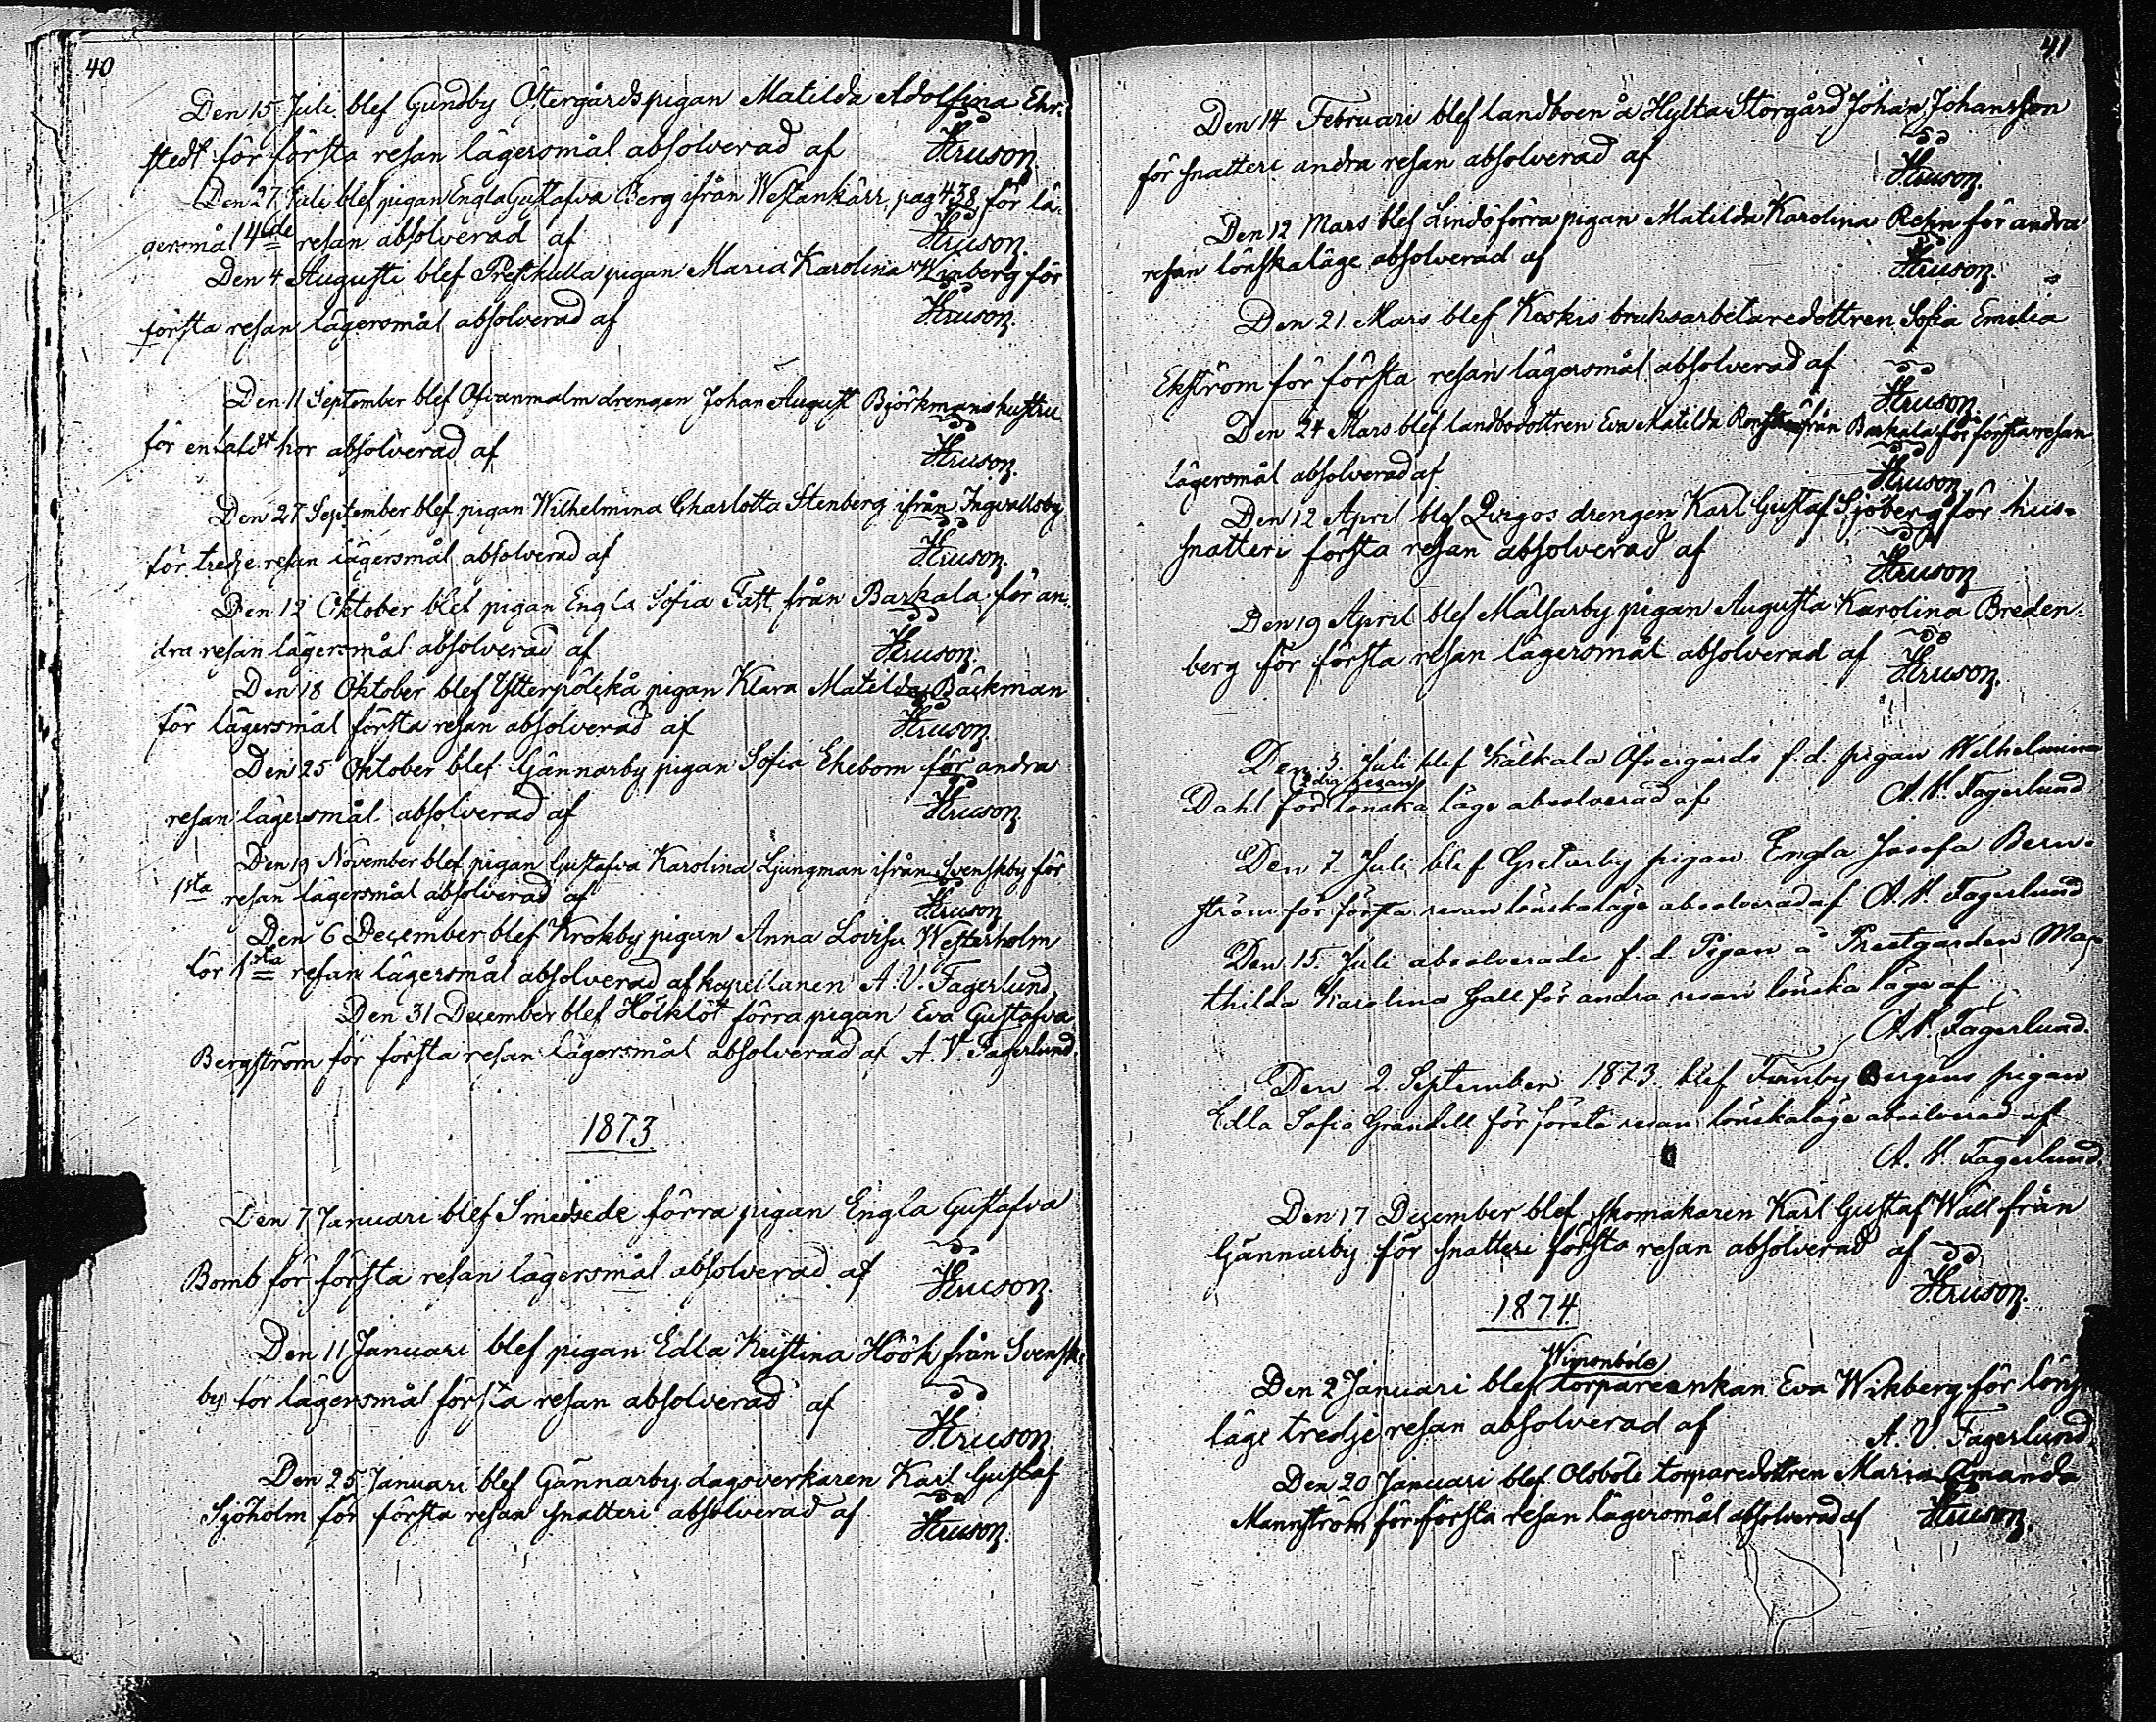 40
Den 15 Juli blef Gundby Östergårds pigan Matilda Adolfina Ehr-
stedt för första resan lägersmål absolverad af Hruson.
Den 27 Juli blef pigan Engla Gustafva Berg ifrån Westankärr, pag 438 för lä-
gersmål 4de resan absolverad af Hruson.
Den 4 Augusti blef Prestkulla pigan Maria Karolina Winberg för
första resan lägersmål absolverad af Hruson.
Den 11 September blef Ofvanmalm drengen Johan August Björkmans hustru
för enkalt hor absolverad af Hruson.
Den 27 September blef pigan Wilhelmina Charlotta Stenberg ifrån Ingvallsby
för tredje resan lägersmål absolverad af Hruson.
Den 12 Oktober blef pigan Engla Sofia Fatt från Barkala för an-
dra resan lägersmål absolverad af Hruson.
Den 18 Oktober blef Ytterpölskä pigan Klara Matilda Bäckman
för lägersmål första resan absolverad af Hruson.
Den 25 Oktober blef Gännarby pigan Sofia Ehebom för andra
resan lägersmål absolverad af Hruson.
Den 19 November blef pigan Gustafva Karolina Ljungman ifrån Svenskby för
1sta resan lägersmål absolverad af Hruson
Den 6 December blef Krokby pigan Anna Lovisa Westerholm
för 1sta resan lägersmål absolverad af kapellanen A. V. Fagerlund.
Den 31 December blef Hölklöt förra pigan Eva Gustafva
Bergström för första resan lägersmål absolverad af A. V. Fagerlund.
1873
Den 7 Januari blef Smedsede förra pigan Engla Gustafva
Bomb för första resan lägersmål absolverad af Hruson.
Den 11 Januari blef pigan Edla Kristina Höök från Svensk-
by för lägersmål första resan absolverad af Hruson.
Den 25 Januari blef Gännarby dagsverkaren Karl Gustaf
Sjöholm för första resan snatteri absolverad af Hruson.
41
Den 14 Februari blef landboen å Hylta Storgård Johan Johansson
för snatteri andra resan absolverad af Hruson.
Den 12 Mars blef Lindö förra pigan Matilda Karolina Rehn för andra
resan lönskaläge absolverad af Hruson.
Den 21 Mars blef Koskis bruksarbetaredottren Sofia Emilia
Ekström för första resan lägersmål absolverad af Hruson
Den 24 Mars blef landbodottren Eva Matilda från Barkala för första resan
lägersmål absolverad af Hruson
Den 12 April blef Qvigos drengen Karl Gustaf Sjöberg för hus-
snatteri första resan absolverad af Hruson
Den 19 April blef Mälsarby pigan Augusta Karolina Breden-
berg för första resan lägersmål absolverad af Hruson.
Den 3. Juli blef Kälkala Öfvergårds f. d. pigan Wilhelmina
Dahl för 2dra resan lönska läge absolverad af A. V. Fagerlund
Den 7. Juli blef Gretarby pigan Engla Josefa Bern-
ström för första resan lönskaläge absolverad af A. V. Fagerlund
Den 15. Juli absolverades f. d. Pigan å Prestgården Ma-
thilda Karolina Gall för andra resan lönska läge af
A. V. Fagerlund.
Den 2 September 1873 blef Finnby Bergens pigan
Edla Sofia Grandell för första resan lönskaläge absolverad af
A. V. Fagerlund.
Den 17 December blef skomakaren Karl Gustaf Wall från
Gännarby för snatteri första resan absolverad af Hruson.
1874
Den 2 Januari blef Wiponböle torpareenkan Eva Wikberg för lönska
läge tredje resan absolverad af A. V. Fagerlund.
Den 20 Januari blef Olsböle torparedottren Maria Amanda
Mannström för första resan lägersmål absolverad af Hruson.